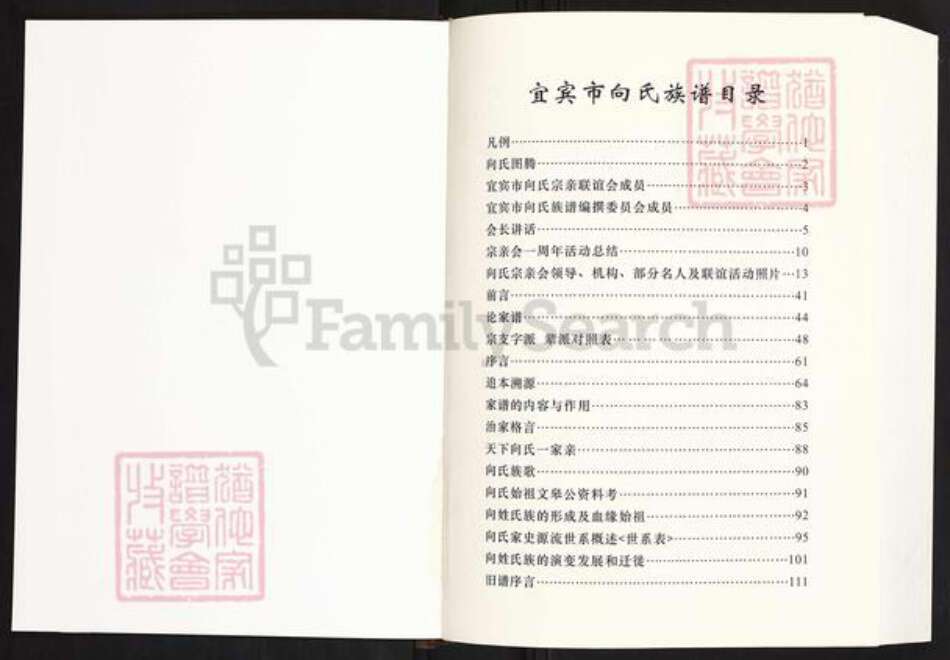 宜宾市向氏族谱目录
凡例……1
向氏图腾……2
宜宾市向氏宗亲联谊会成员……3
宜宾市向氏族谱编撰委员会成员……4
会长讲话……5
宗亲会一周年活动总结……10
向氏宗亲会领导、机构、部分名人及联谊活动照片…13
前言……41
论家谱……44
宗支字派 辈派对照表……48
序言……61
追本溯源……64
家谱的内容与作用……83
治家格言……85
天下向氏一家亲……88
向氏族歌……90
向氏始祖文皋公资料考……91
向姓氏族的形成及血缘始祖……92
向氏家史源流世系概述<世系表>……95
向姓氏族的演变发展和迁徙……101
旧谱序言……111
FamilySearch